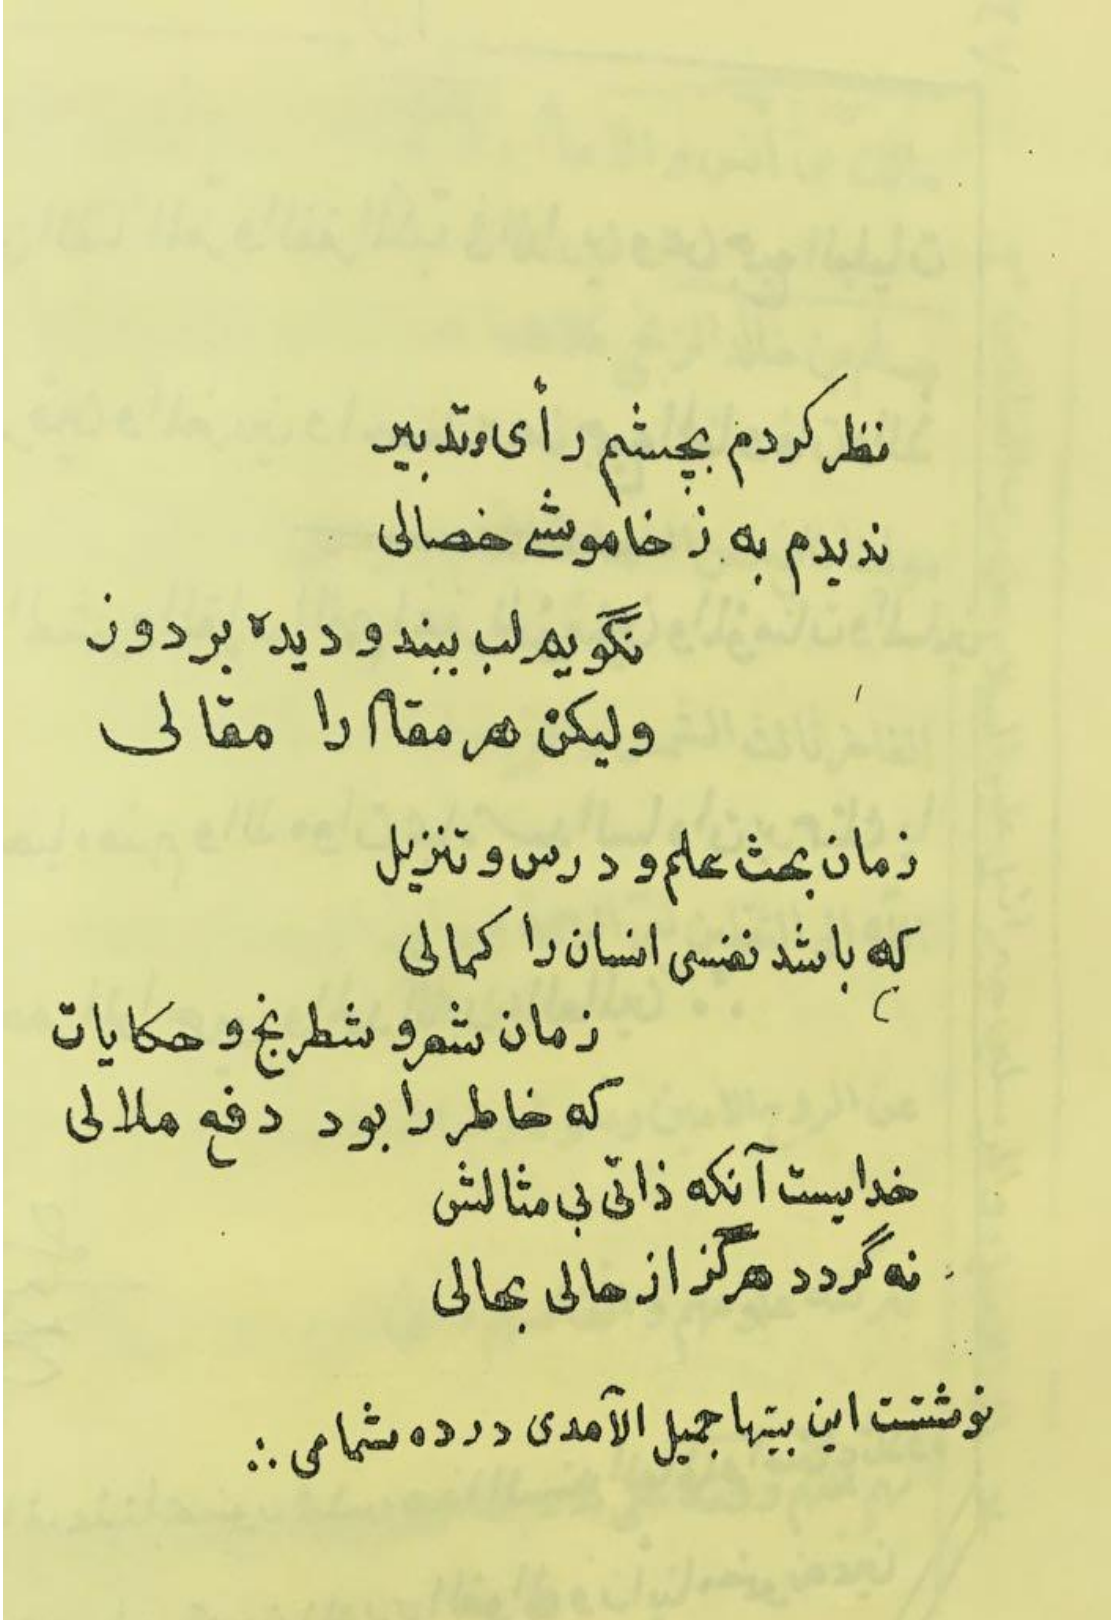 نظر کردم بچشم رأی وتدبیر
ندیدم به ز خاموشے خصالی
نگویم لب ببند و دیده بر دوز
ولیکن هر مقام را مقالی
زمان بحث علم و درس و تنزیل
که باشد نفسی انسان را کمالی
زمان شعر و شطرنج و حکایات
که خاطر را بود دفع ملالی
خدایست آنکه ذاتی بی مثالش
نه گردد هرگز از حالی بحالی
نوشتت این بیتها جمیل الآمدی درده شمامی